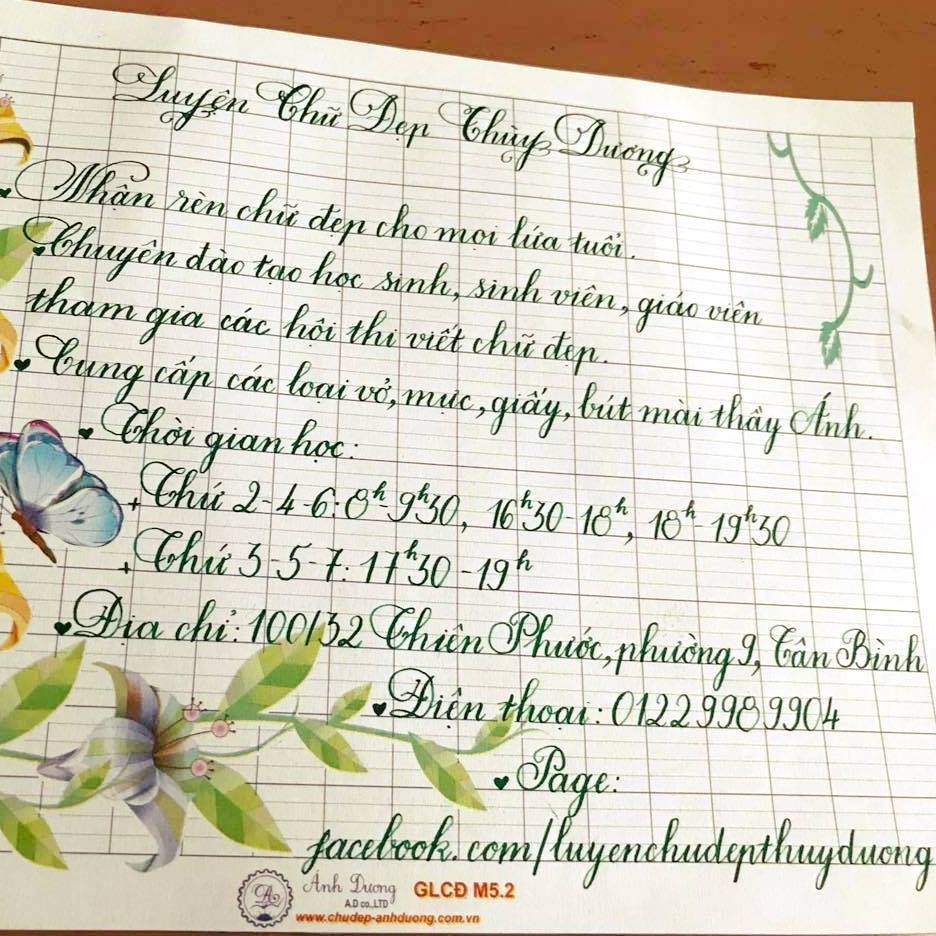 Luyện Chữ Đẹp Thùy Dương
Nhận rèn chữ đẹp cho mọi lứa tuổi.
Chuyên đào tạo học sinh, sinh viên, giáo viên
tham gia các hội thi viết chữ đẹp.
Cung cấp các loại vở, mực, giấy, bút mài thầy Ánh.
Thời gian học:
+ Thứ 2-4-6: 8h-9h30, 16h30-18h, 18h-19h30
+ Thứ 3-5-7: 17h30-19h
Địa chỉ: 100/32 Thiên Phước, phường 9, Tân Bình
Điện thoại: 01229989904
Page:
facebook.com/luyenchudepthuyduong
Ánh Dương GLCĐ M5.2
A.D co.,LTD
www.chudep-anhduong.com.vn